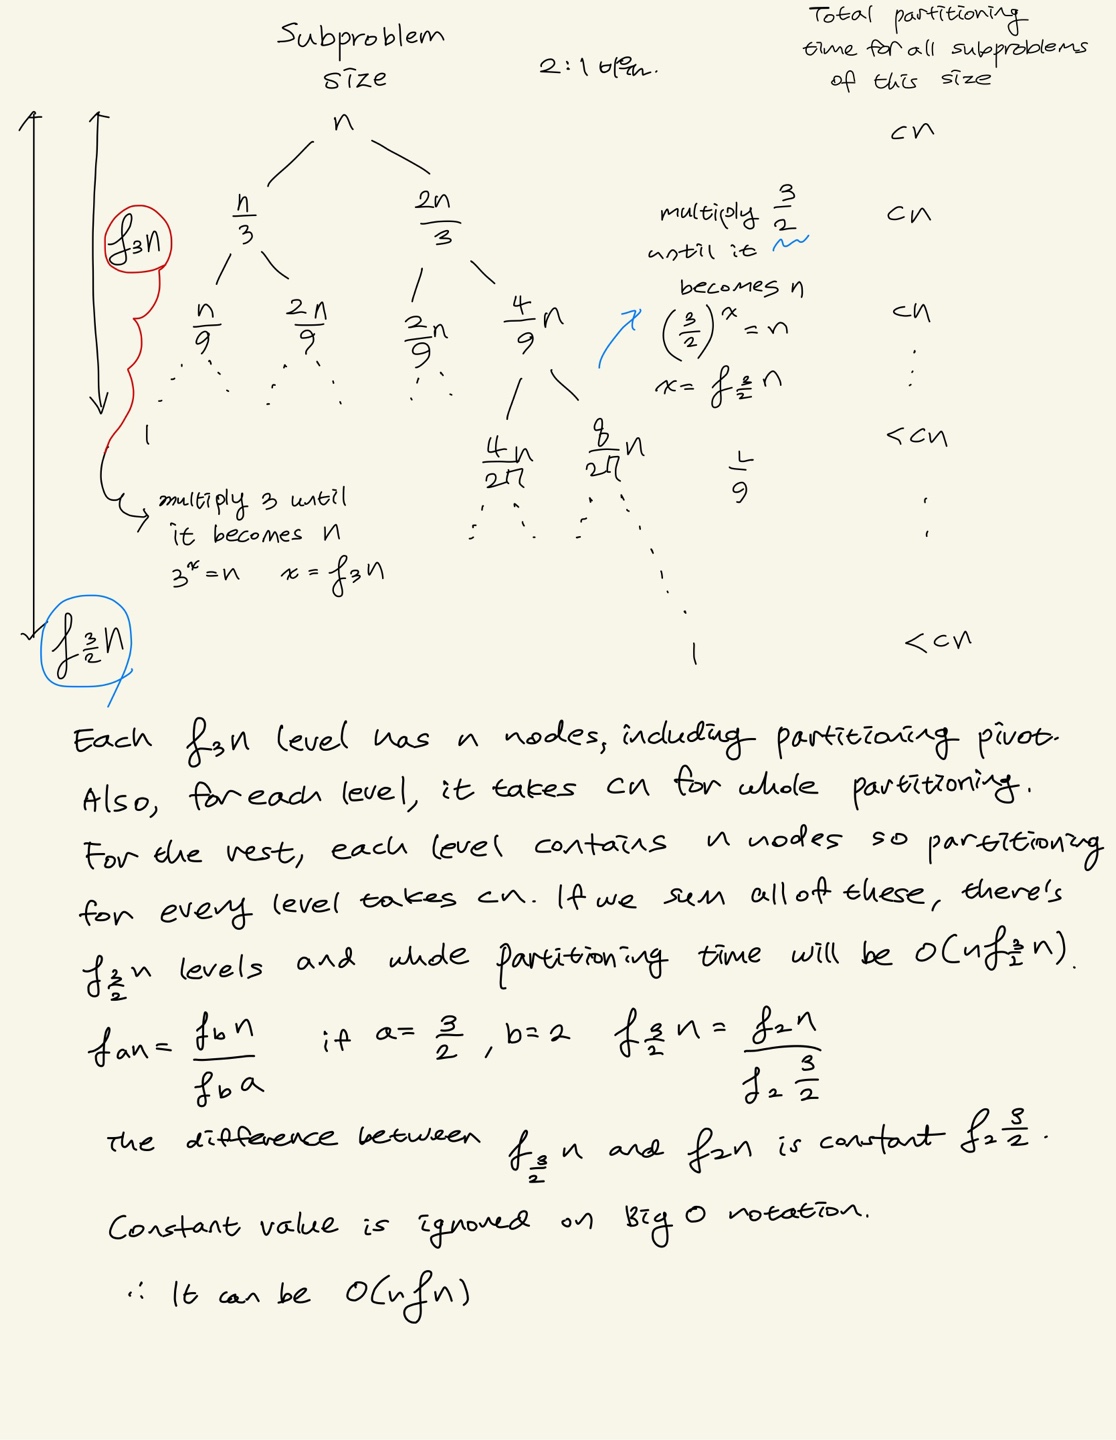 Subproblem
size
2:1
Total partitioning
time for all subproblems
of this size
n
cn
n/3 2n/3
cn
f₃n
multiply 3/2
until it
becomes n
(3/2)^x = n
x = f_{3/2} n
n/9 2n/9 2/9 n 4/9 n
cn
1
4n/27 8/27 n
1/9
<cn
multiply 3 until
it becomes n
3^x = n x = f₃n
f_{3/2} n
1
<cn
Each f₃n level has n nodes, including partitioning pivot.
Also, for each level, it takes cn for whole partitioning.
For the rest, each level contains n nodes so partitioning
for every level takes cn. If we sum all of these, there's
f_{3/2} n levels and whole partitioning time will be O(n f_{3/2} n).
f_a n = f_b n / f_b a if a = 3/2, b = 2 f_{3/2} n = f₂n / f₂ 3/2
The difference between f_{3/2} n and f₂n is constant f₂ 3/2.
Constant value is ignored on Big O notation.
∴ It can be O(n f n)